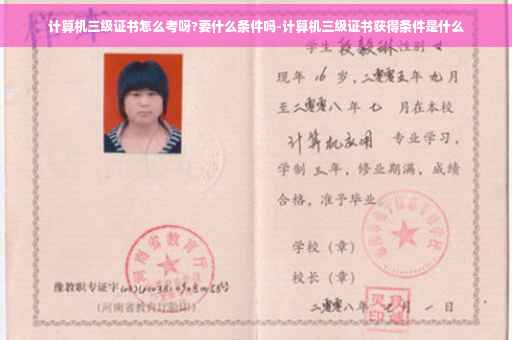 计算机三级证书怎么考呀?要什么条件吗-计算机三级证书获得条件是什么
样本
学生 段毅琳 性别 女
现年 16 岁,二零零五年 九月
至二零零八年 七 月在本校
计算机应用 专业学习,
学制 三年,修业期满,成绩
合格,准予毕业
学校(章)
河南省教育厅
校长(章)
豫教职专证字
(河南省教育厅验印)
二零零八年 七月 一日